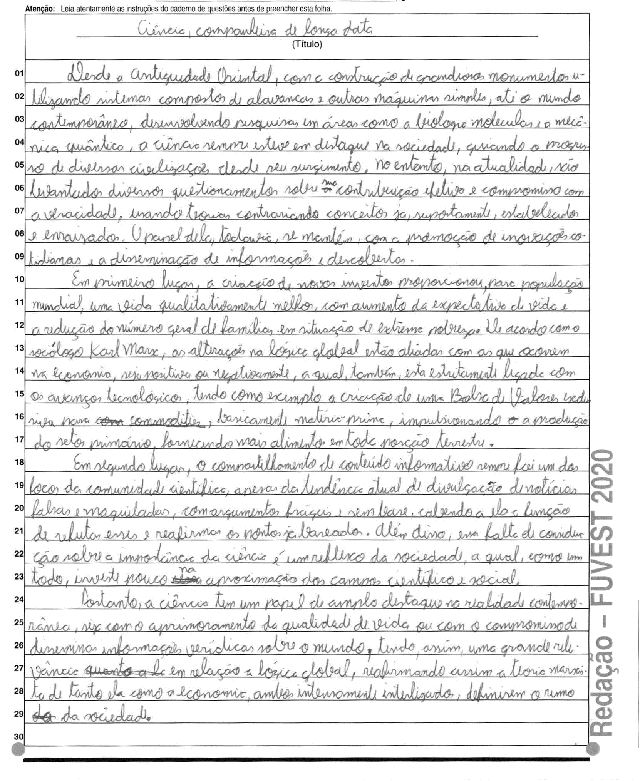 Atenção: Leia atentamente as instruções do caderno de questões antes de preencher esta folha.
Ciência, companheira de longa data
(Título)
01 Desde a Antiguidade Oriental, com a construção de grandiosos monumentos u-
02 tilizando sistemas compostos de alavancas e outras máquinas simples, até o mundo
03 contemporâneo, desenvolvendo pesquisas em áreas como a biologia molecular e a mecâ-
04 nica quântica, a ciência sempre esteve em destaque na sociedade, guiando o progres
05 so de diversas civilizações desde seu surgimento. No entanto, na atualidade, são
06 levantados diversos questionamentos sobre sua contribuição efetiva e compromisso com
07 a veracidade, usando teorias contrariando conceitos já, supostamente, estabelecidos
08 e enraizados. O papel dela, todavia, se mantém, com a promoção de inovações co-
09 tidianas e a disseminação de informações e descobertas.
10 Em primeiro lugar, a criação de novos inventos proporcionou, para população
11 mundial, uma vida qualitativamente melhor, com aumento da expectativa de vida e
12 a redução do número geral de famílias em situação de extrema pobreza. De acordo com o
13 sociólogo Karl Marx, as alterações na lógica global estão aliadas com as que ocorrem
14 na economia, seja positiva ou negativamente, a qual, também, está estritamente ligada com
15 os avanços tecnológicos, tendo como exemplo a criação de uma Bolsa de Valores exclu
16 siva para commodities, basicamente matéria-prima, impulsionando a produção
17 do setor primário, fornecendo mais alimento em toda porção terrestre.
18 Em segundo lugar, o compartilhamento de conteúdo informativo sempre foi um dos
19 focos da comunidade científica, apesar da tendência atual de divulgação de notícias
20 falsas e maquiladas, com argumentos frágeis e sem base, cabendo a ela a função
21 de refutar esses e reafirmar os pontos já baseados. Além disso, essa falta de considera
22 ção sobre a importância da ciência é um reflexo da sociedade, a qual, como um
23 todo, investe pouco na aproximação dos campos científico e social.
24 Portanto, a ciência tem um papel de amplo destaque na realidade contempo-
25 rânea, seja com o aprimoramento da qualidade de vida ou com o compromisso de
26 disseminar informações verídicas sobre o mundo, tendo, assim, uma grande rele-
27 vância em relação a lógica global, reafirmando assim a teoria marxis-
28 ta de tanto ela como a economia, ambos intensamente interligados, definirem o rumo
29 da sociedade.
30
Redação – FUVEST 2020